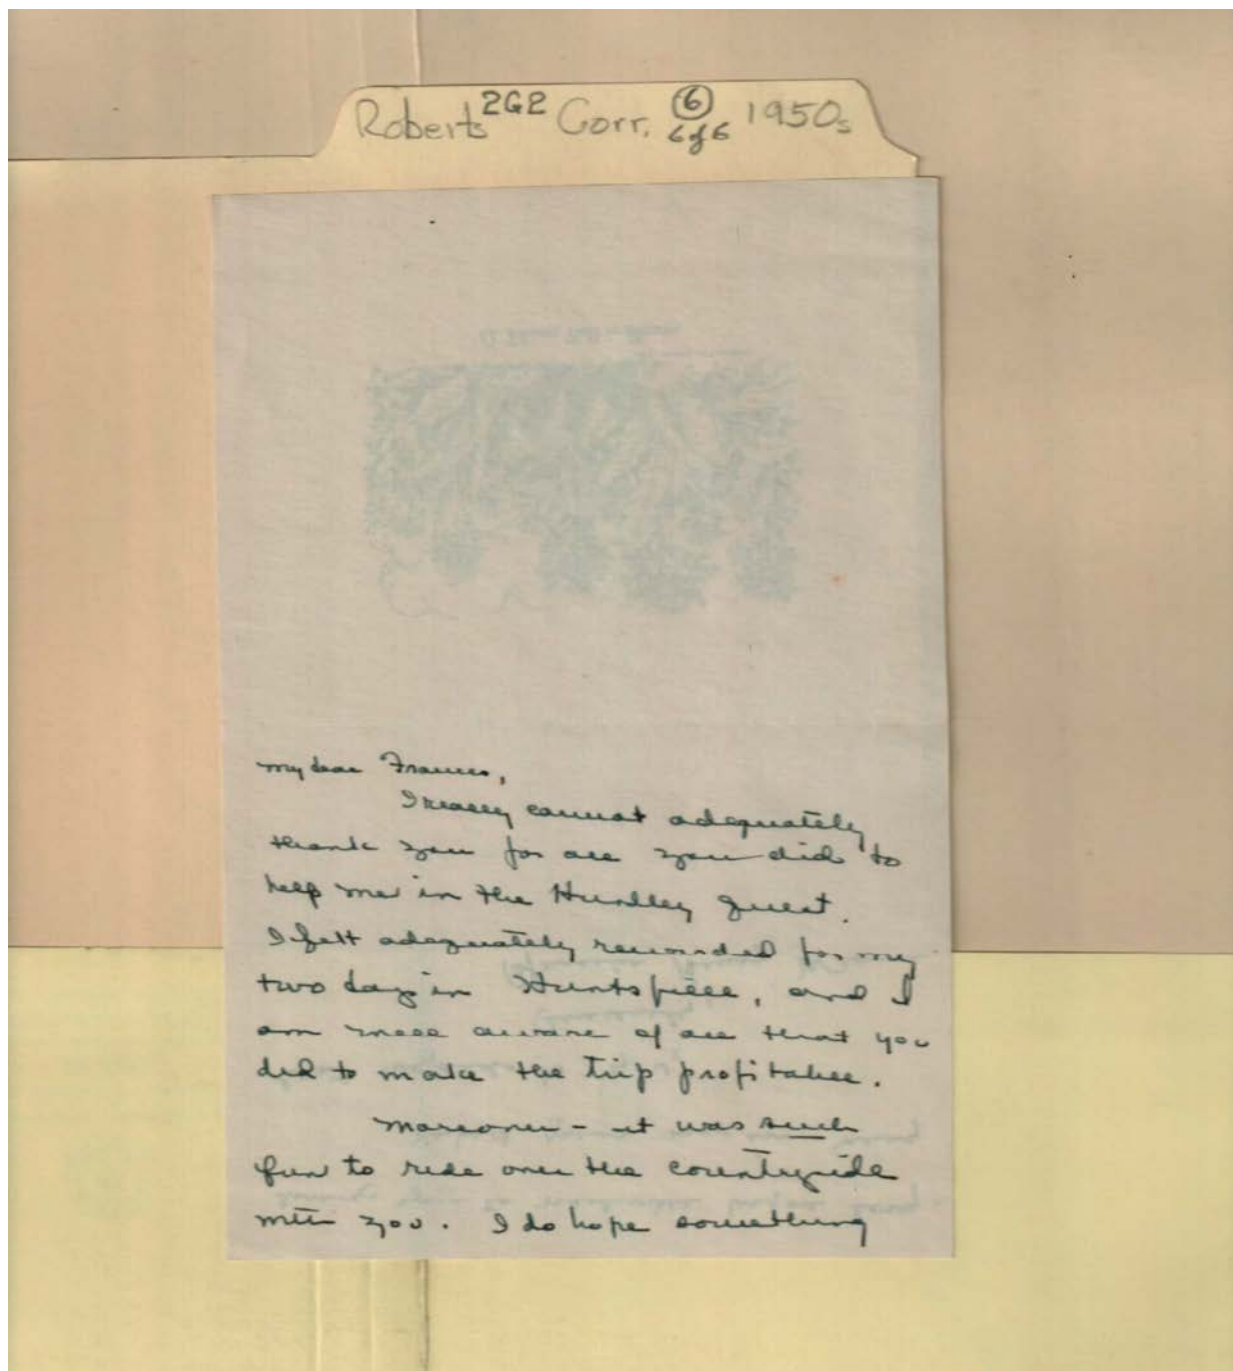 Roberts 2G2 Corr. 6 1950s
6 of 6
My dear Frances,
I really cannot adequately
thank you for all you did to
help me in the Hundley quest.
I felt adequately rewarded for my
two days in Huntsville, and I
am well aware of all that you
did to make the trip profitable.
Moreover - it was such
fun to ride over the countryside
with you. I do hope something